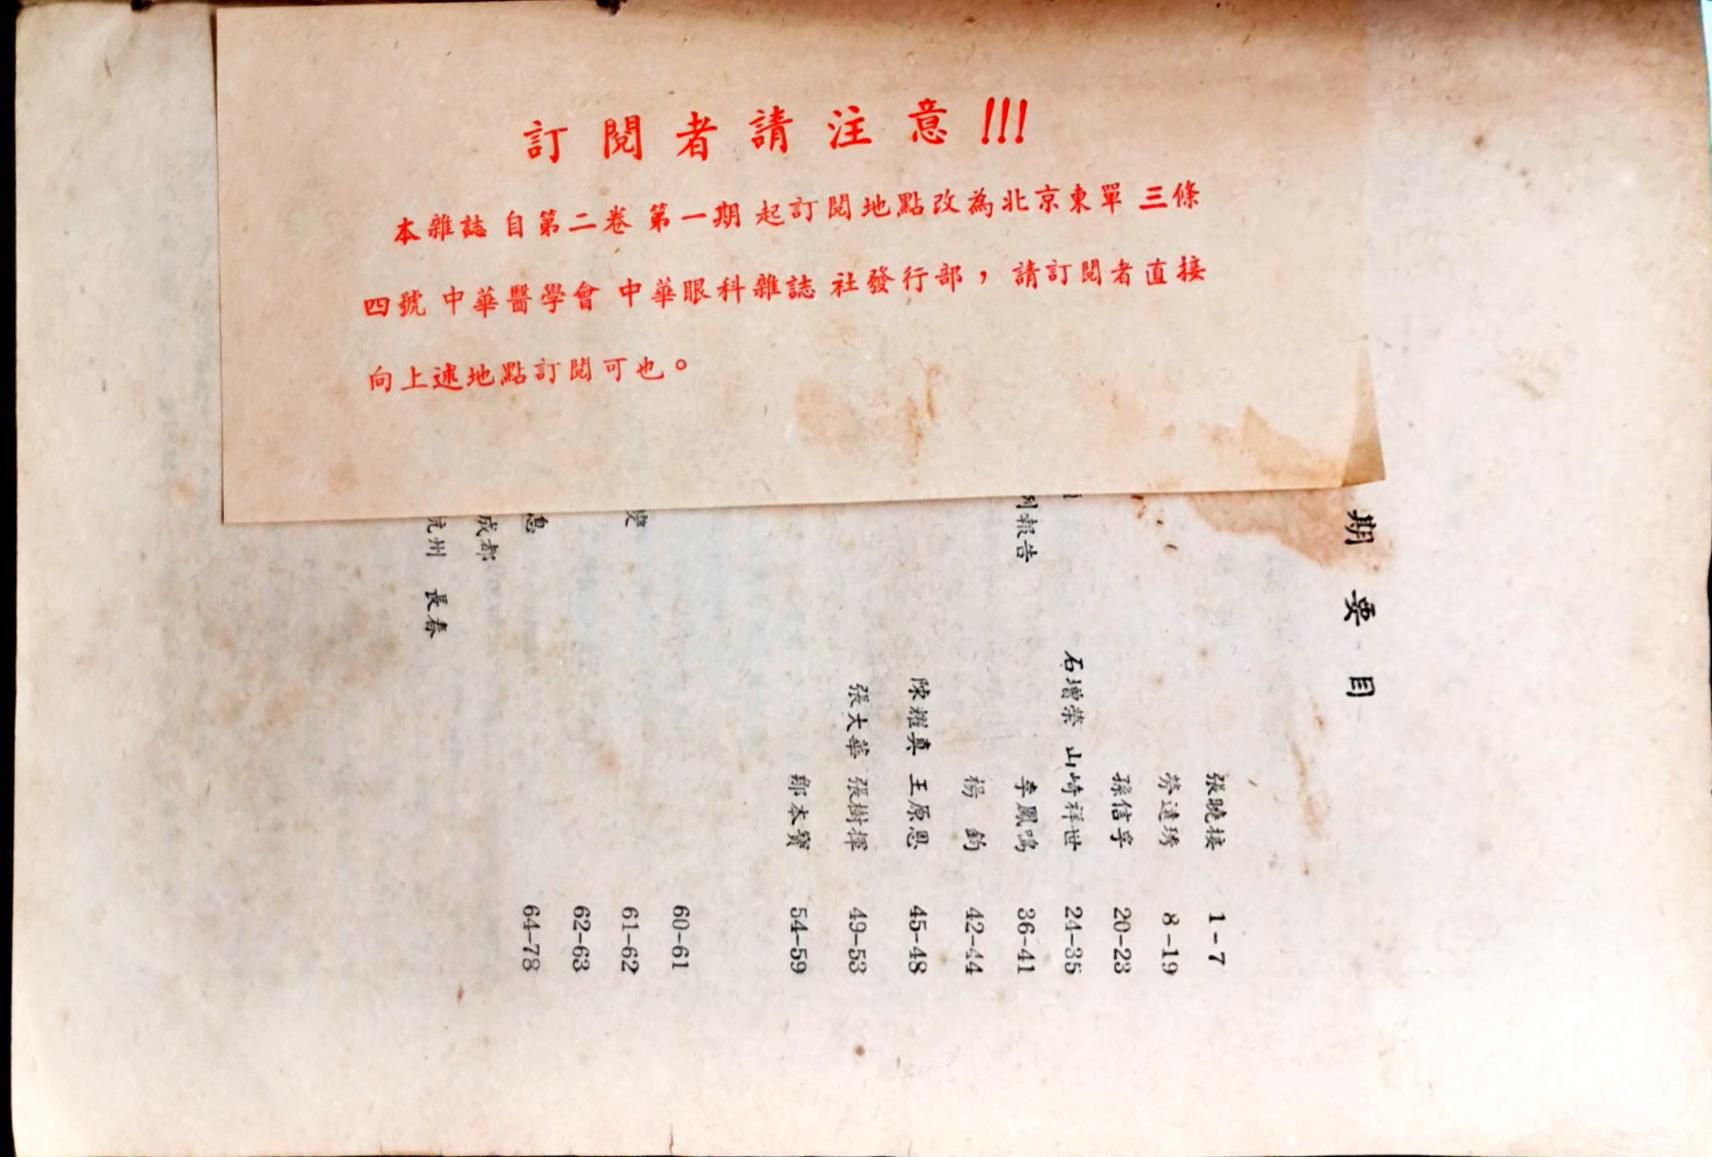 訂閱者請注意!!!
本雜誌自第二卷第一期起訂閱地點改為北京東單三條
四號中華醫學會中華眼科雜誌社發行部，請訂閱者直接
向上述地點訂閱可也。
期要目
張曉楼 1-7
勞遠琇 8-19
孫信孚 20-23
石增榮 山崎祥世 24-35
報告 李鳳鳴 36-41
楊鈞 42-44
陳耀真 王原思 45-48
張大華 張樹揮 49-53
鄒本寶 54-59
60-61
61-62
62-63
息 64-78
成都
杭州 長春